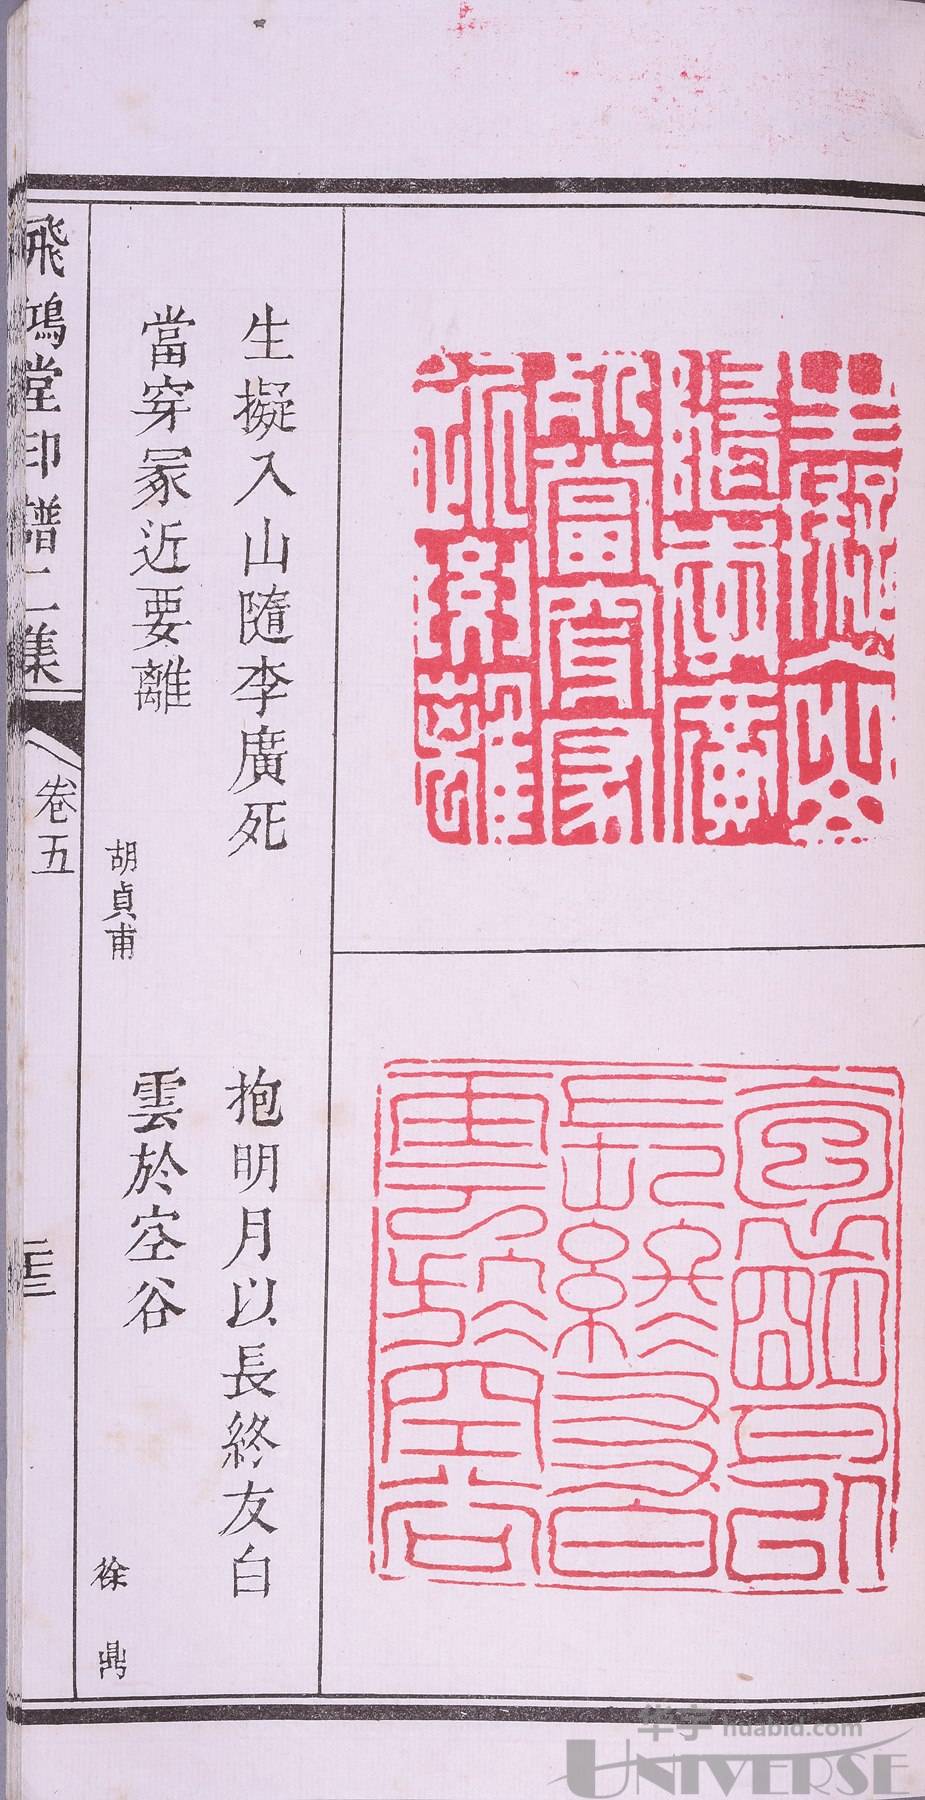 生擬入山隨李廣死
當穿冢近要離
胡貞甫
抱明月以長終友白
雲於空谷
徐鼎
飛鴻堂印譜二集
卷五
华宇 huabid.com
UNIVERSE